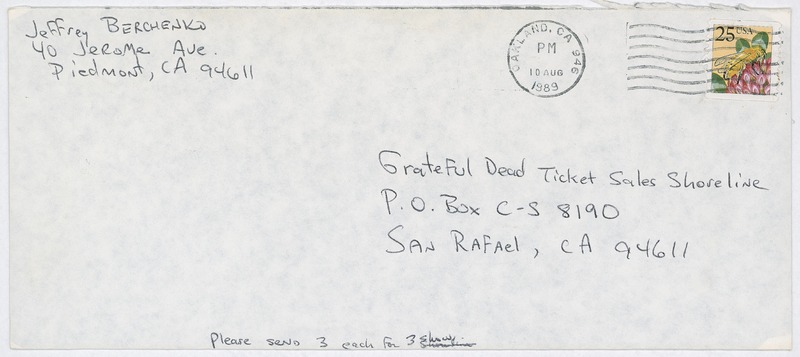 Jeffrey BERCHENKO
40 Jerome Ave.
Piedmont, CA 94611
OAKLAND, CA 946
PM
10 AUG
1989
25 USA
Grateful Dead Ticket Sales Shoreline
P.O. Box C-S 8190
SAN RAFAel, CA 94611
Please send 3 each for 3